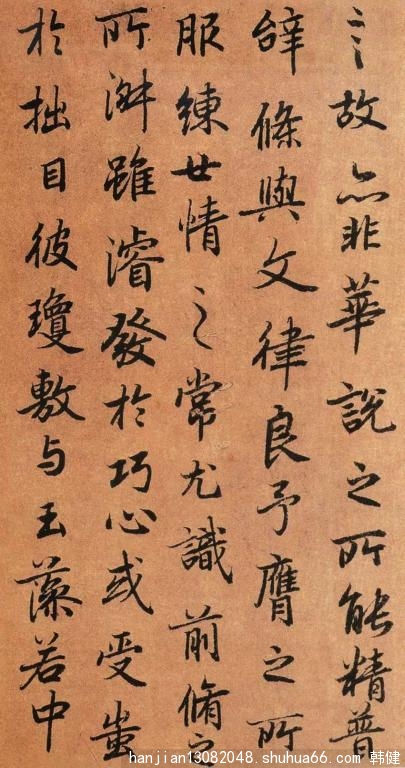 言故亦非華說之所能精普
辝條與文律良予膺之所
服練世情之常尤識前脩之
所淑雖濬發於巧心或受蚩
於拙目彼瓊敷与玉藻若中
hanjian13082048.shuhua66.com 韩健